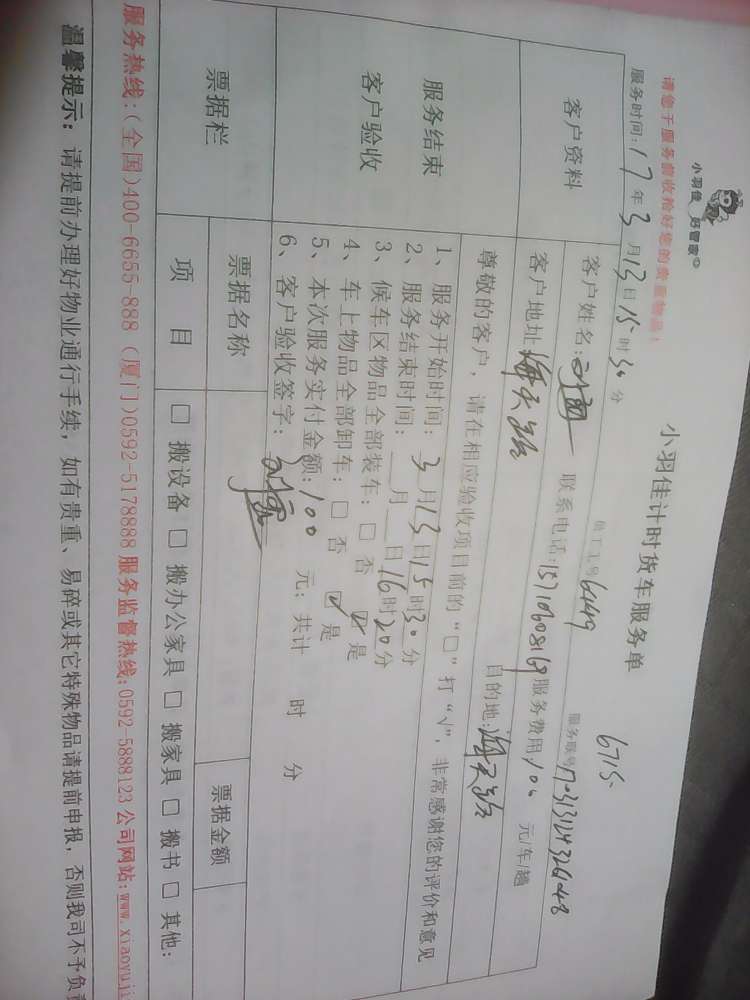 小羽佳 好管家
请您于服务前收拾好您的贵重物品！
小羽佳计时货车服务单
6715
服务时间：17年3月13日15时30分
员工工号 6449
服务联号 170313124326048
客户资料
客户姓名：
联系电话：15710608169
服务费用 100 元/车/趟
客户地址 海天路
目的地：海天路
服务结束
客户验收
尊敬的客户，请在相应验收项目前的“□”打“√”，非常感谢您的评价和意见
1、服务开始时间：3月13日15时30分
2、服务结束时间：月 日16时20分
3、候车区物品全部装车：□否 ☑是
4、车上物品全部卸车：□否 ☑是
5、本次服务实付金额：100 元；共计 时 分
6、客户验收签字：
票据栏
票据名称
票据金额
项 目
□搬设备 □搬办公家具 □搬家具 □搬书 □其他：
服务热线：(全国)400-6655-888 (厦门)0592-5178888 服务监督热线：0592-5888123 公司网站：www.xiaoyuji
温馨提示：请提前办理好物业通行手续，如有贵重、易碎或其它特殊物品请提前申报，否则我司不予负